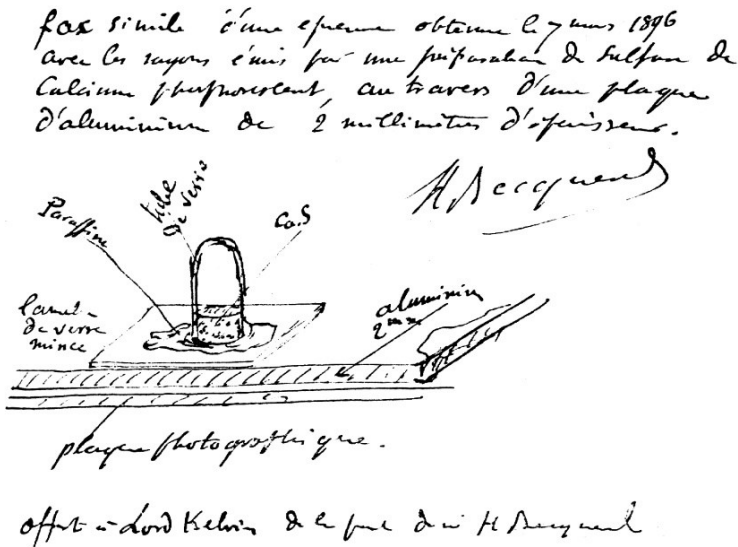 fac simile d'une épreuve obtenue le 7 mars 1896
avec les rayons émis par une préparation de sulfure de
Calcium phosphorescent, au travers d'une plaque
d'aluminium de 2 millimètres d'épaisseur.
H Becquerel
Paraffine
tube
de verre
CaS
lamelle
de verre
mince
aluminium
2mm
plaque photographique.
offert à Lord Kelvin de la part de H Becquerel